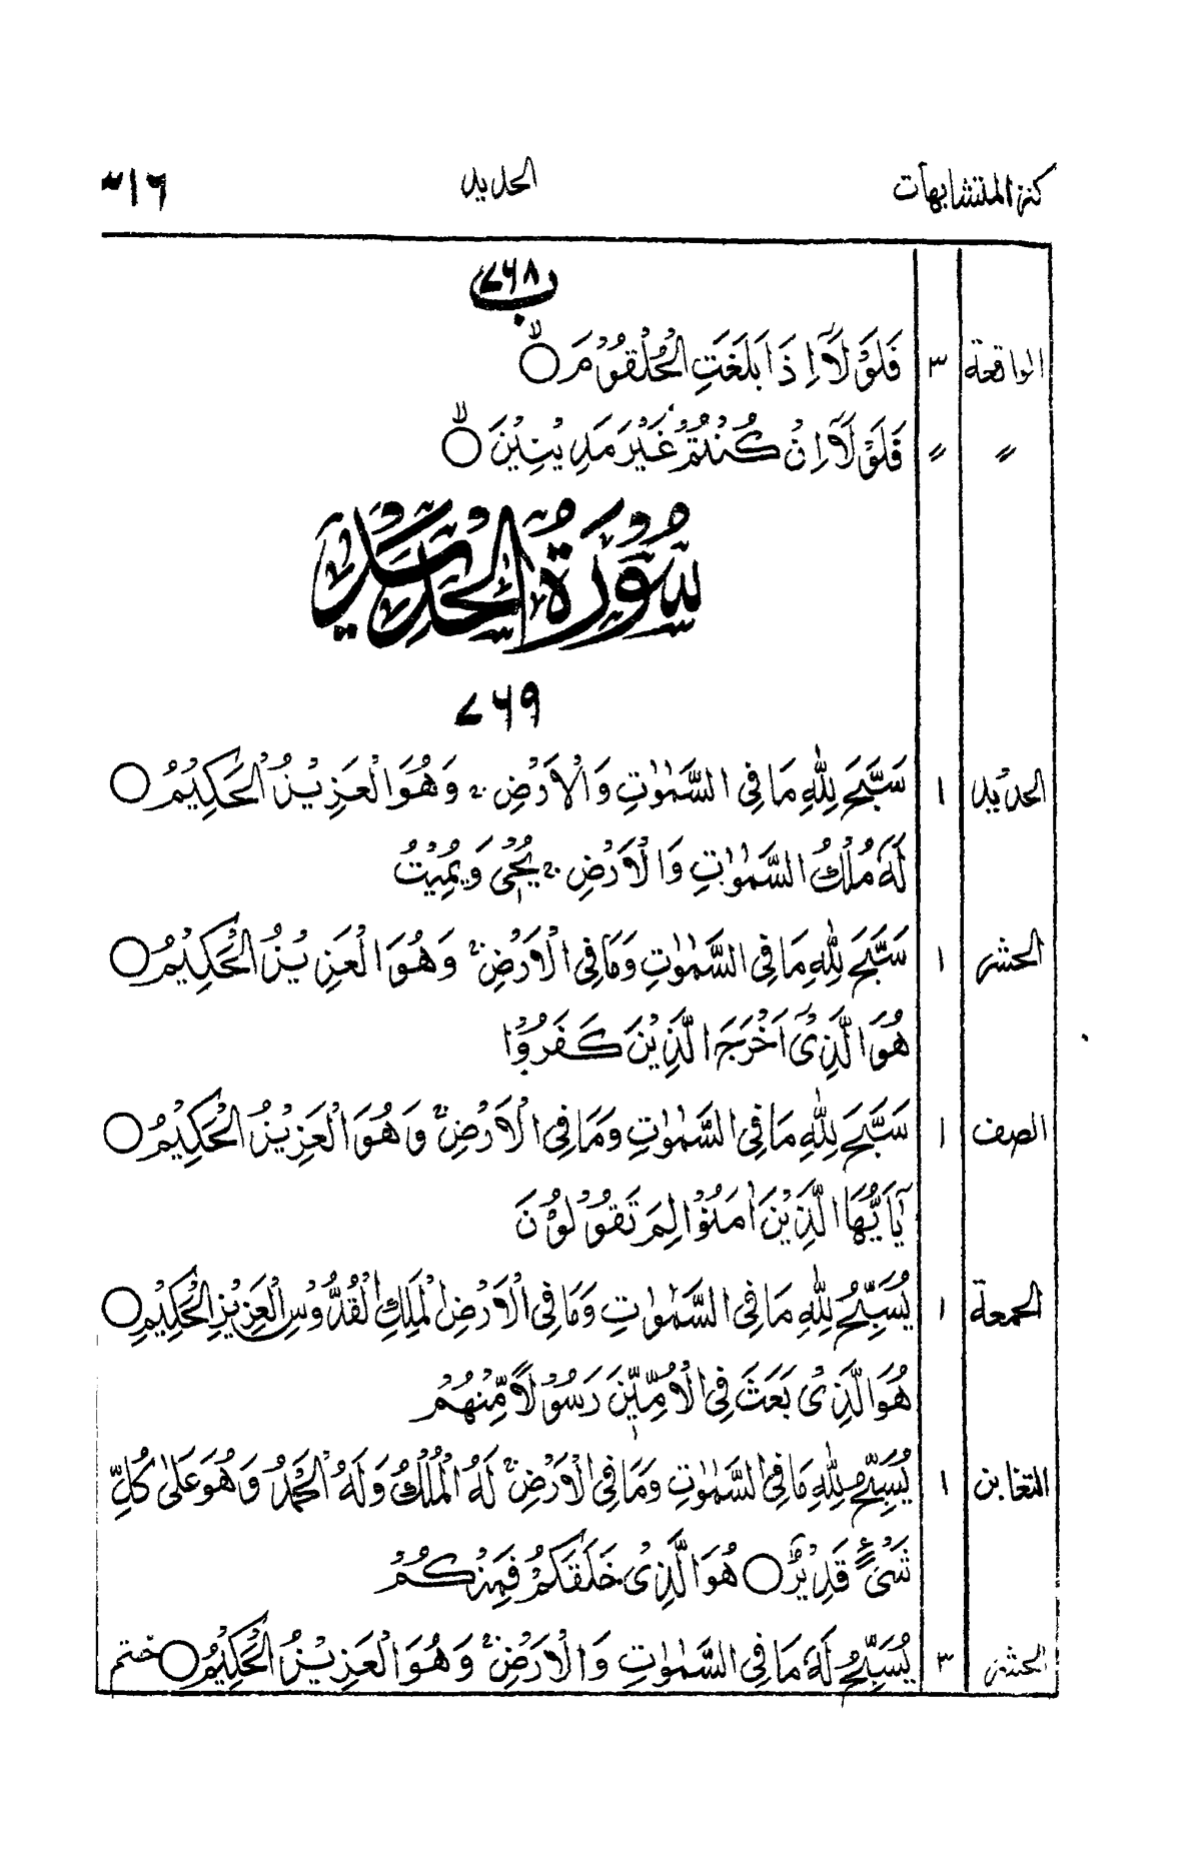 كنز المتشابهات الحديد ٣١٦
٧٦٨
ب
الواقعة ٣ فَلَوْلَآ اِذَا بَلَغَتِ الْحُلْقُوْمَ ۙ○
〃 〃 فَلَوْلَآ اِنْ كُنْتُمْ غَيْرَ مَدِيْنِيْنَ ۙ○
سُوْرَةُ الْحَدِيْدِ
٧٦٩
الحديد ١ سَبَّحَ لِلّٰهِ مَا فِى السَّمٰوٰتِ وَالْاَرْضِ ۚ وَهُوَ الْعَزِيْزُ الْحَكِيْمُ ○
لَهٗ مُلْكُ السَّمٰوٰتِ وَالْاَرْضِ ۚ يُحْيٖ وَيُمِيْتُ
الحشر ١ سَبَّحَ لِلّٰهِ مَا فِى السَّمٰوٰتِ وَمَا فِى الْاَرْضِ ۚ وَهُوَ الْعَزِيْزُ الْحَكِيْمُ ○
هُوَ الَّذِىْٓ اَخْرَجَ الَّذِيْنَ كَفَرُوْا
الصف ١ سَبَّحَ لِلّٰهِ مَا فِى السَّمٰوٰتِ وَمَا فِى الْاَرْضِ ۚ وَهُوَ الْعَزِيْزُ الْحَكِيْمُ ○
يٰٓاَيُّهَا الَّذِيْنَ اٰمَنُوْا لِمَ تَقُوْلُوْنَ
الجمعة ١ يُسَبِّحُ لِلّٰهِ مَا فِى السَّمٰوٰتِ وَمَا فِى الْاَرْضِ الْمَلِكِ الْقُدُّوْسِ الْعَزِيْزِ الْحَكِيْمِ ○
هُوَ الَّذِىْ بَعَثَ فِى الْاُمِّيّٖنَ رَسُوْلًا مِّنْهُمْ
التغابن ١ يُسَبِّحُ لِلّٰهِ مَا فِى السَّمٰوٰتِ وَمَا فِى الْاَرْضِ ۚ لَهُ الْمُلْكُ وَلَهُ الْحَمْدُ وَهُوَ عَلٰى كُلِّ
شَىْءٍ قَدِيْرٌ ○ هُوَ الَّذِىْ خَلَقَكُمْ فَمِنْكُمْ
الحشر ٣ يُسَبِّحُ لَهٗ مَا فِى السَّمٰوٰتِ وَالْاَرْضِ ۚ وَهُوَ الْعَزِيْزُ الْحَكِيْمُ ○ ختم